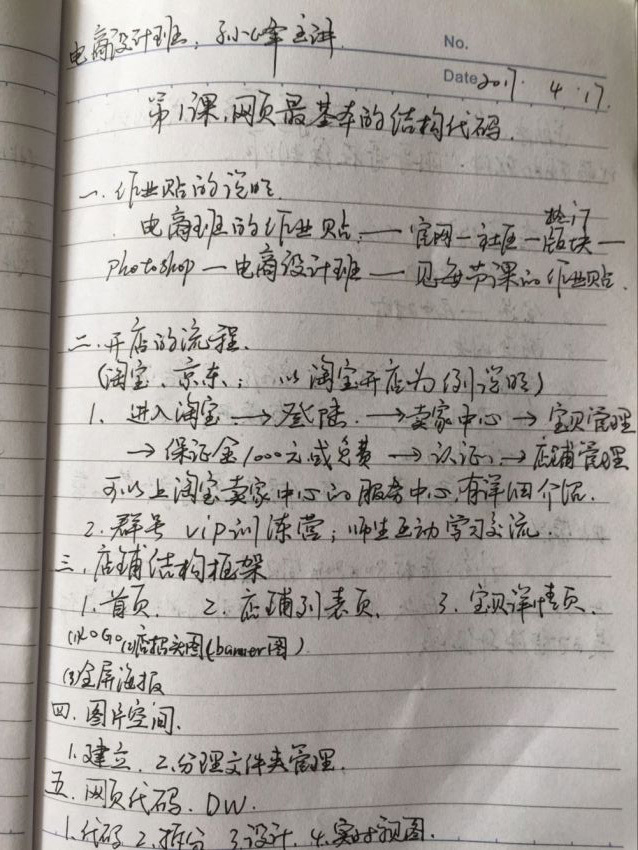 电商设计班：孙小峰主讲
No.
Date 2017. 4. 17.
第1课，网页最基本的结构代码．
一．作业贴的说明．
电商班的作业贴 — 官网 — 社区 — 热门版块 —
Photoshop — 电商设计班 — 见每节课的作业贴．
二．开店的流程．
（淘宝、京东； 以淘宝开店为例说明）
1. 进入淘宝 → 登陆 → 卖家中心 → 宝贝管理
→ 保证金1000元或免费 → 认证 → 店铺管理
可以上淘宝卖家中心的服务中心，有详细介绍．
2. 群号 vip训练营；师生互动学习交流．
三．店铺结构框架
1. 首页． 2. 店铺列表页． 3. 宝贝详情页
(1)LOGO (2)店招头图（banner图）
(3)全屏海报
四．图片空间．
1. 建立． 2. 分理文件夹管理．
五．网页代码．DW．
1. 代码 2. 拆分 3. 设计． 4. 实时视图．